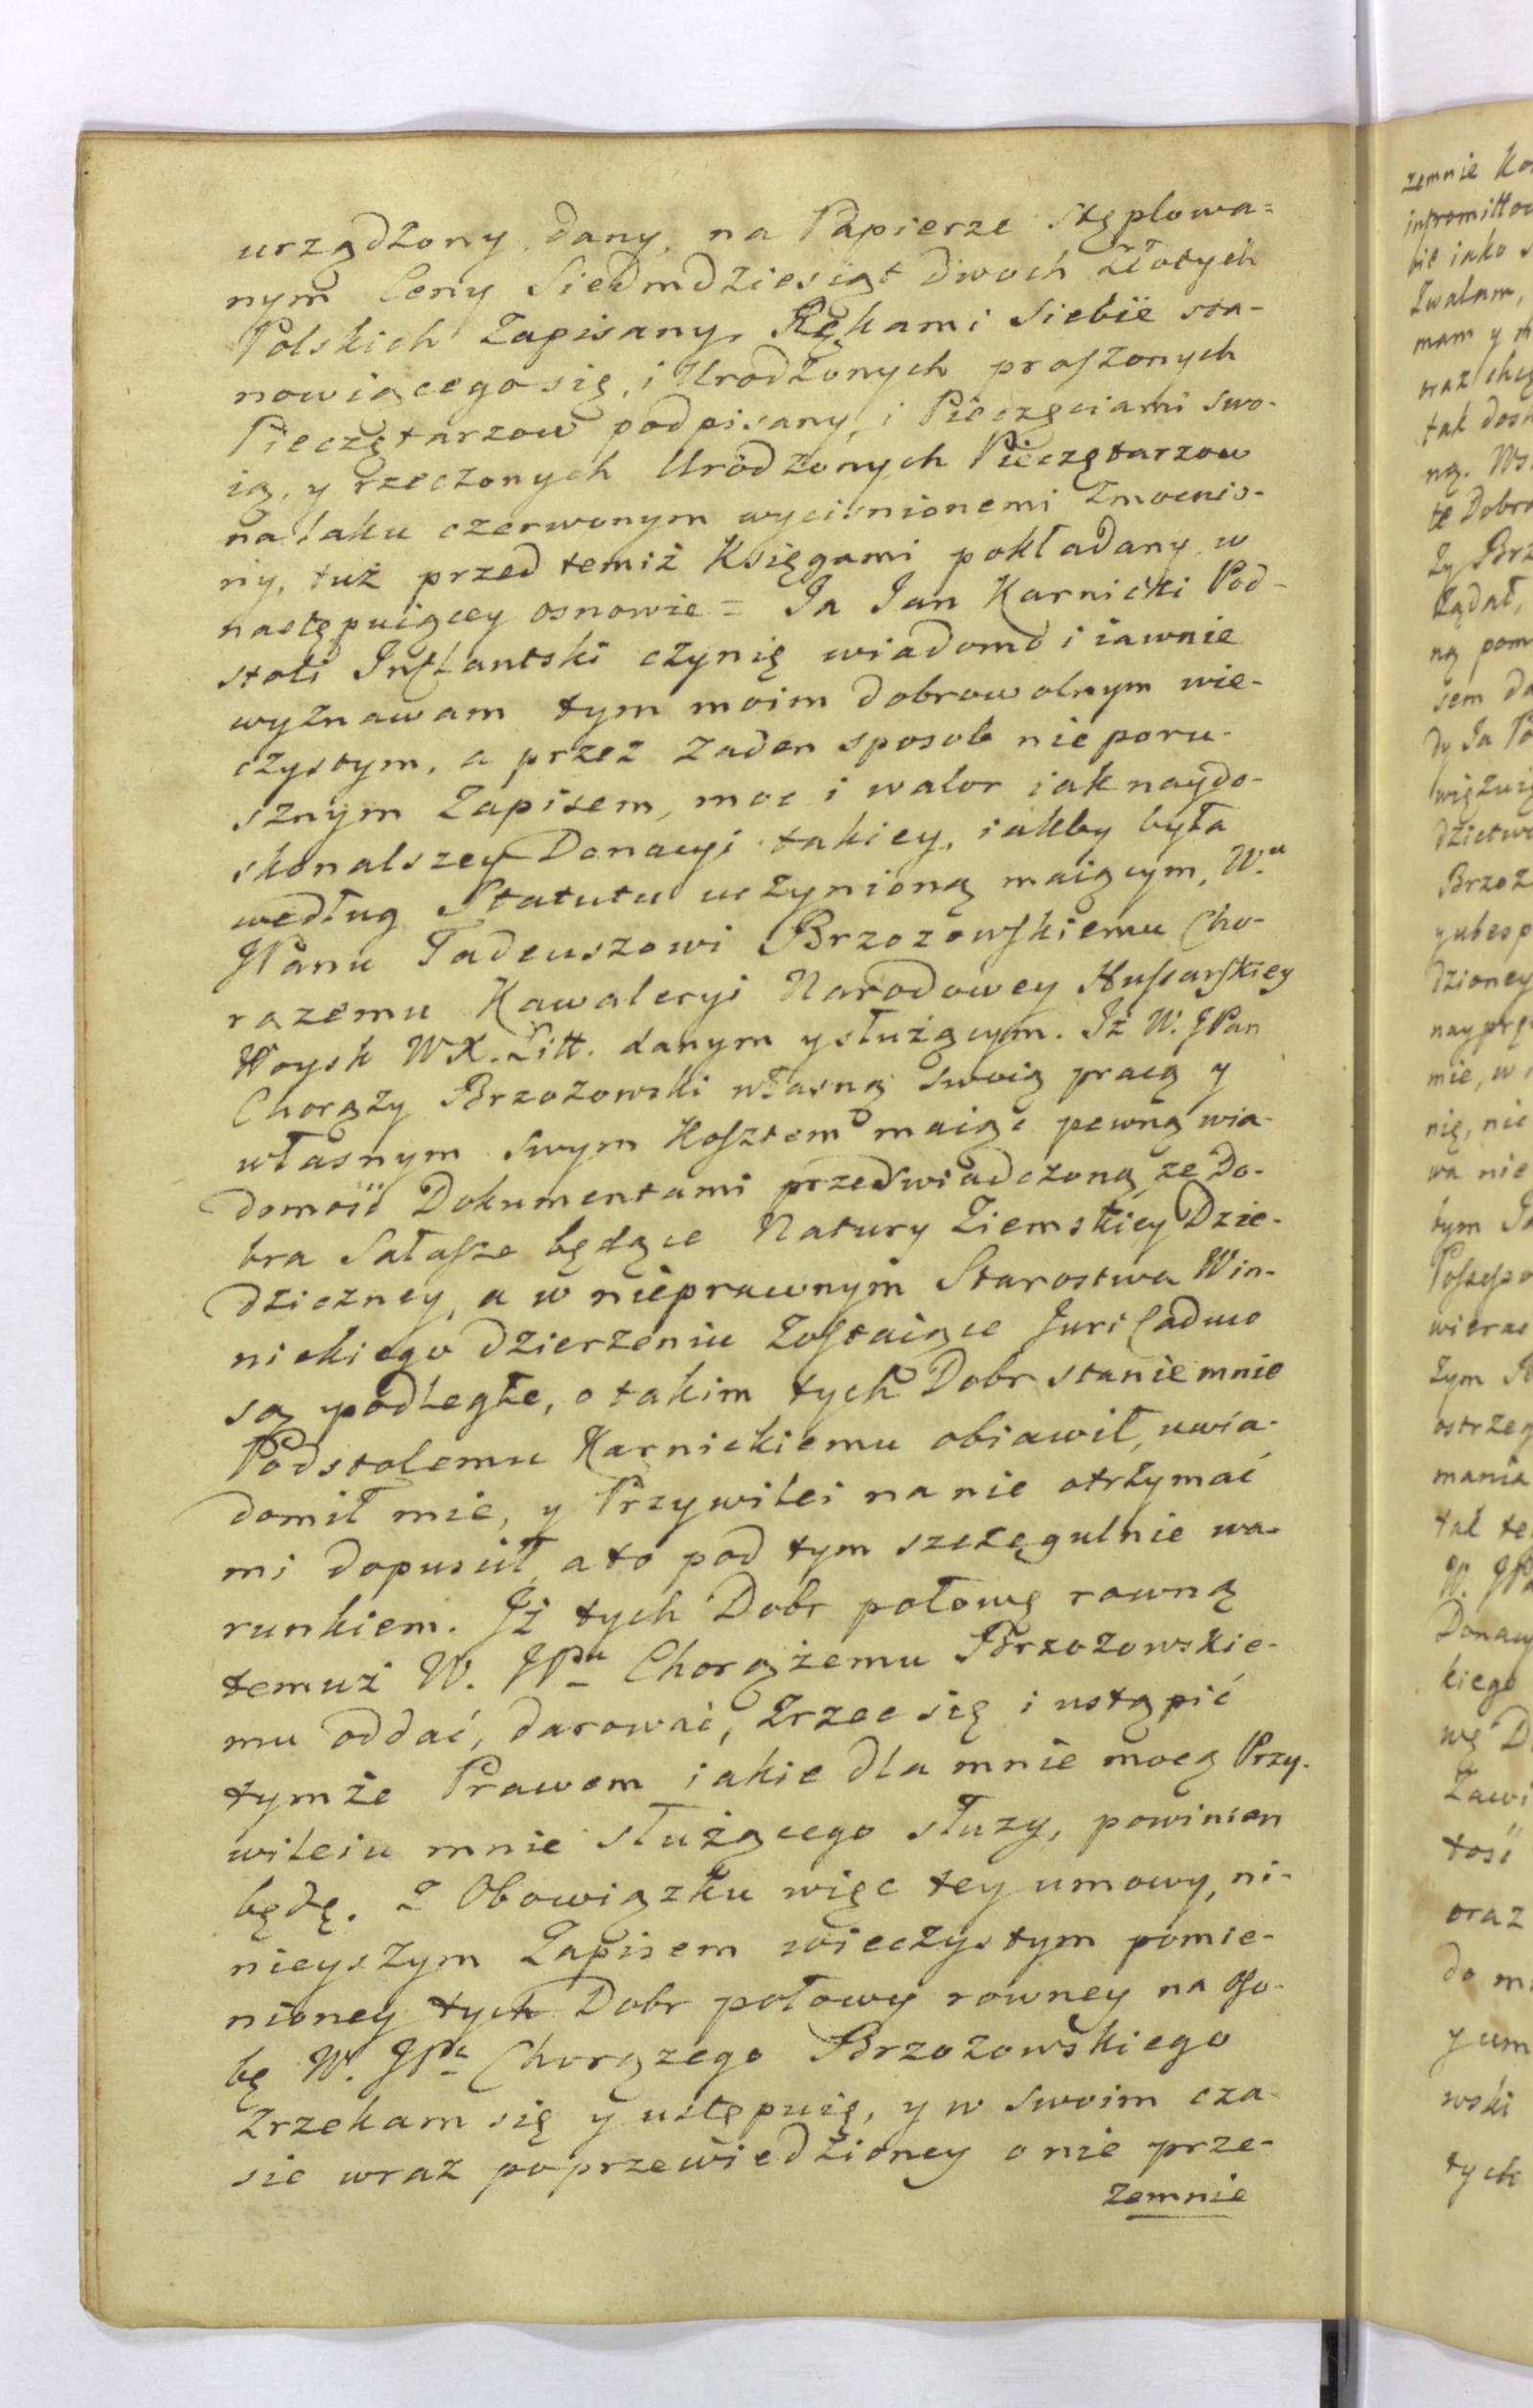 urządzony, dany, na Papierze stęplowa=
nym Ceny Siedmdziesiąt dwoch Złotych
Polskich Zapisany, Rękami Siebie sta-
nowiącego się, i Urodzonych proszonych
Pieczętarzow podpisany, i Pieczęciami swo-
ią, y rzeczonych Urodzonych Pieczętarzow
na laku czerwonym wycisnionemi Zmocnio-
ny, tuż przed temiż Księgami pokładany w
następuiącey osnowie = Ja Jan Karnicki Pod-
stoli Inflantski czynię wiadomo i iawnie
wyznawam tym moim dobrowolnym wie-
czystym, a przez Zaden sposob nieporu-
sznym Zapisem, moc i walor iak naydo-
skonalszey Donacyi takiey, iakby była
według Statutu uczynioną maiącym, W.u
JPanu Tadeuszowi Brzozowskiemu Cho-
rązemu Kawaleryi Narodowey Hussarskiey
Woysk W.X.Litt. danym y służącym. Iż W. JPan
Chorąży Brzozowski własną swoią pracą y
własnym swym Kosztem maiąc pewną wia-
domość Dokumentami przeświadczoną, ze Do-
bra Sałasze będące Natury Ziemskiey Dzie-
dziczney, a w nieprawnym Starostwa Win-
nickiego dzierzeniu Zostaiące Juri Caduco
są podległe, o takim tych Dobr stanie mnie
Podstolemu Karnickiemu obiawił, uwia-
domił mie, y Przywilei na nie otrzymać
mi dopuścił, a to pod tym szczegulnie wa-
runkiem. Iż tych Dobr połowę rowną
temuż W. JPu Chorążemu Brzozowskie-
mu oddać, darować, Zrzec się i ustąpić
tymże Prawem iakie dla mnie mocą Przy-
wileiu mnie służącego służy, powinien
będę. Z Obowiązku więc tey umowy, ni-
nieyszym Zapisem wieczystym pomie-
nioney tych Dobr połowy rowney na Oso-
bę W. JPa Chorązego Brzozowskiego
Zrzekam się y ustępuię, y w swoim cza-
sie wraz po przewiedzioney o nie prze-
zemnie